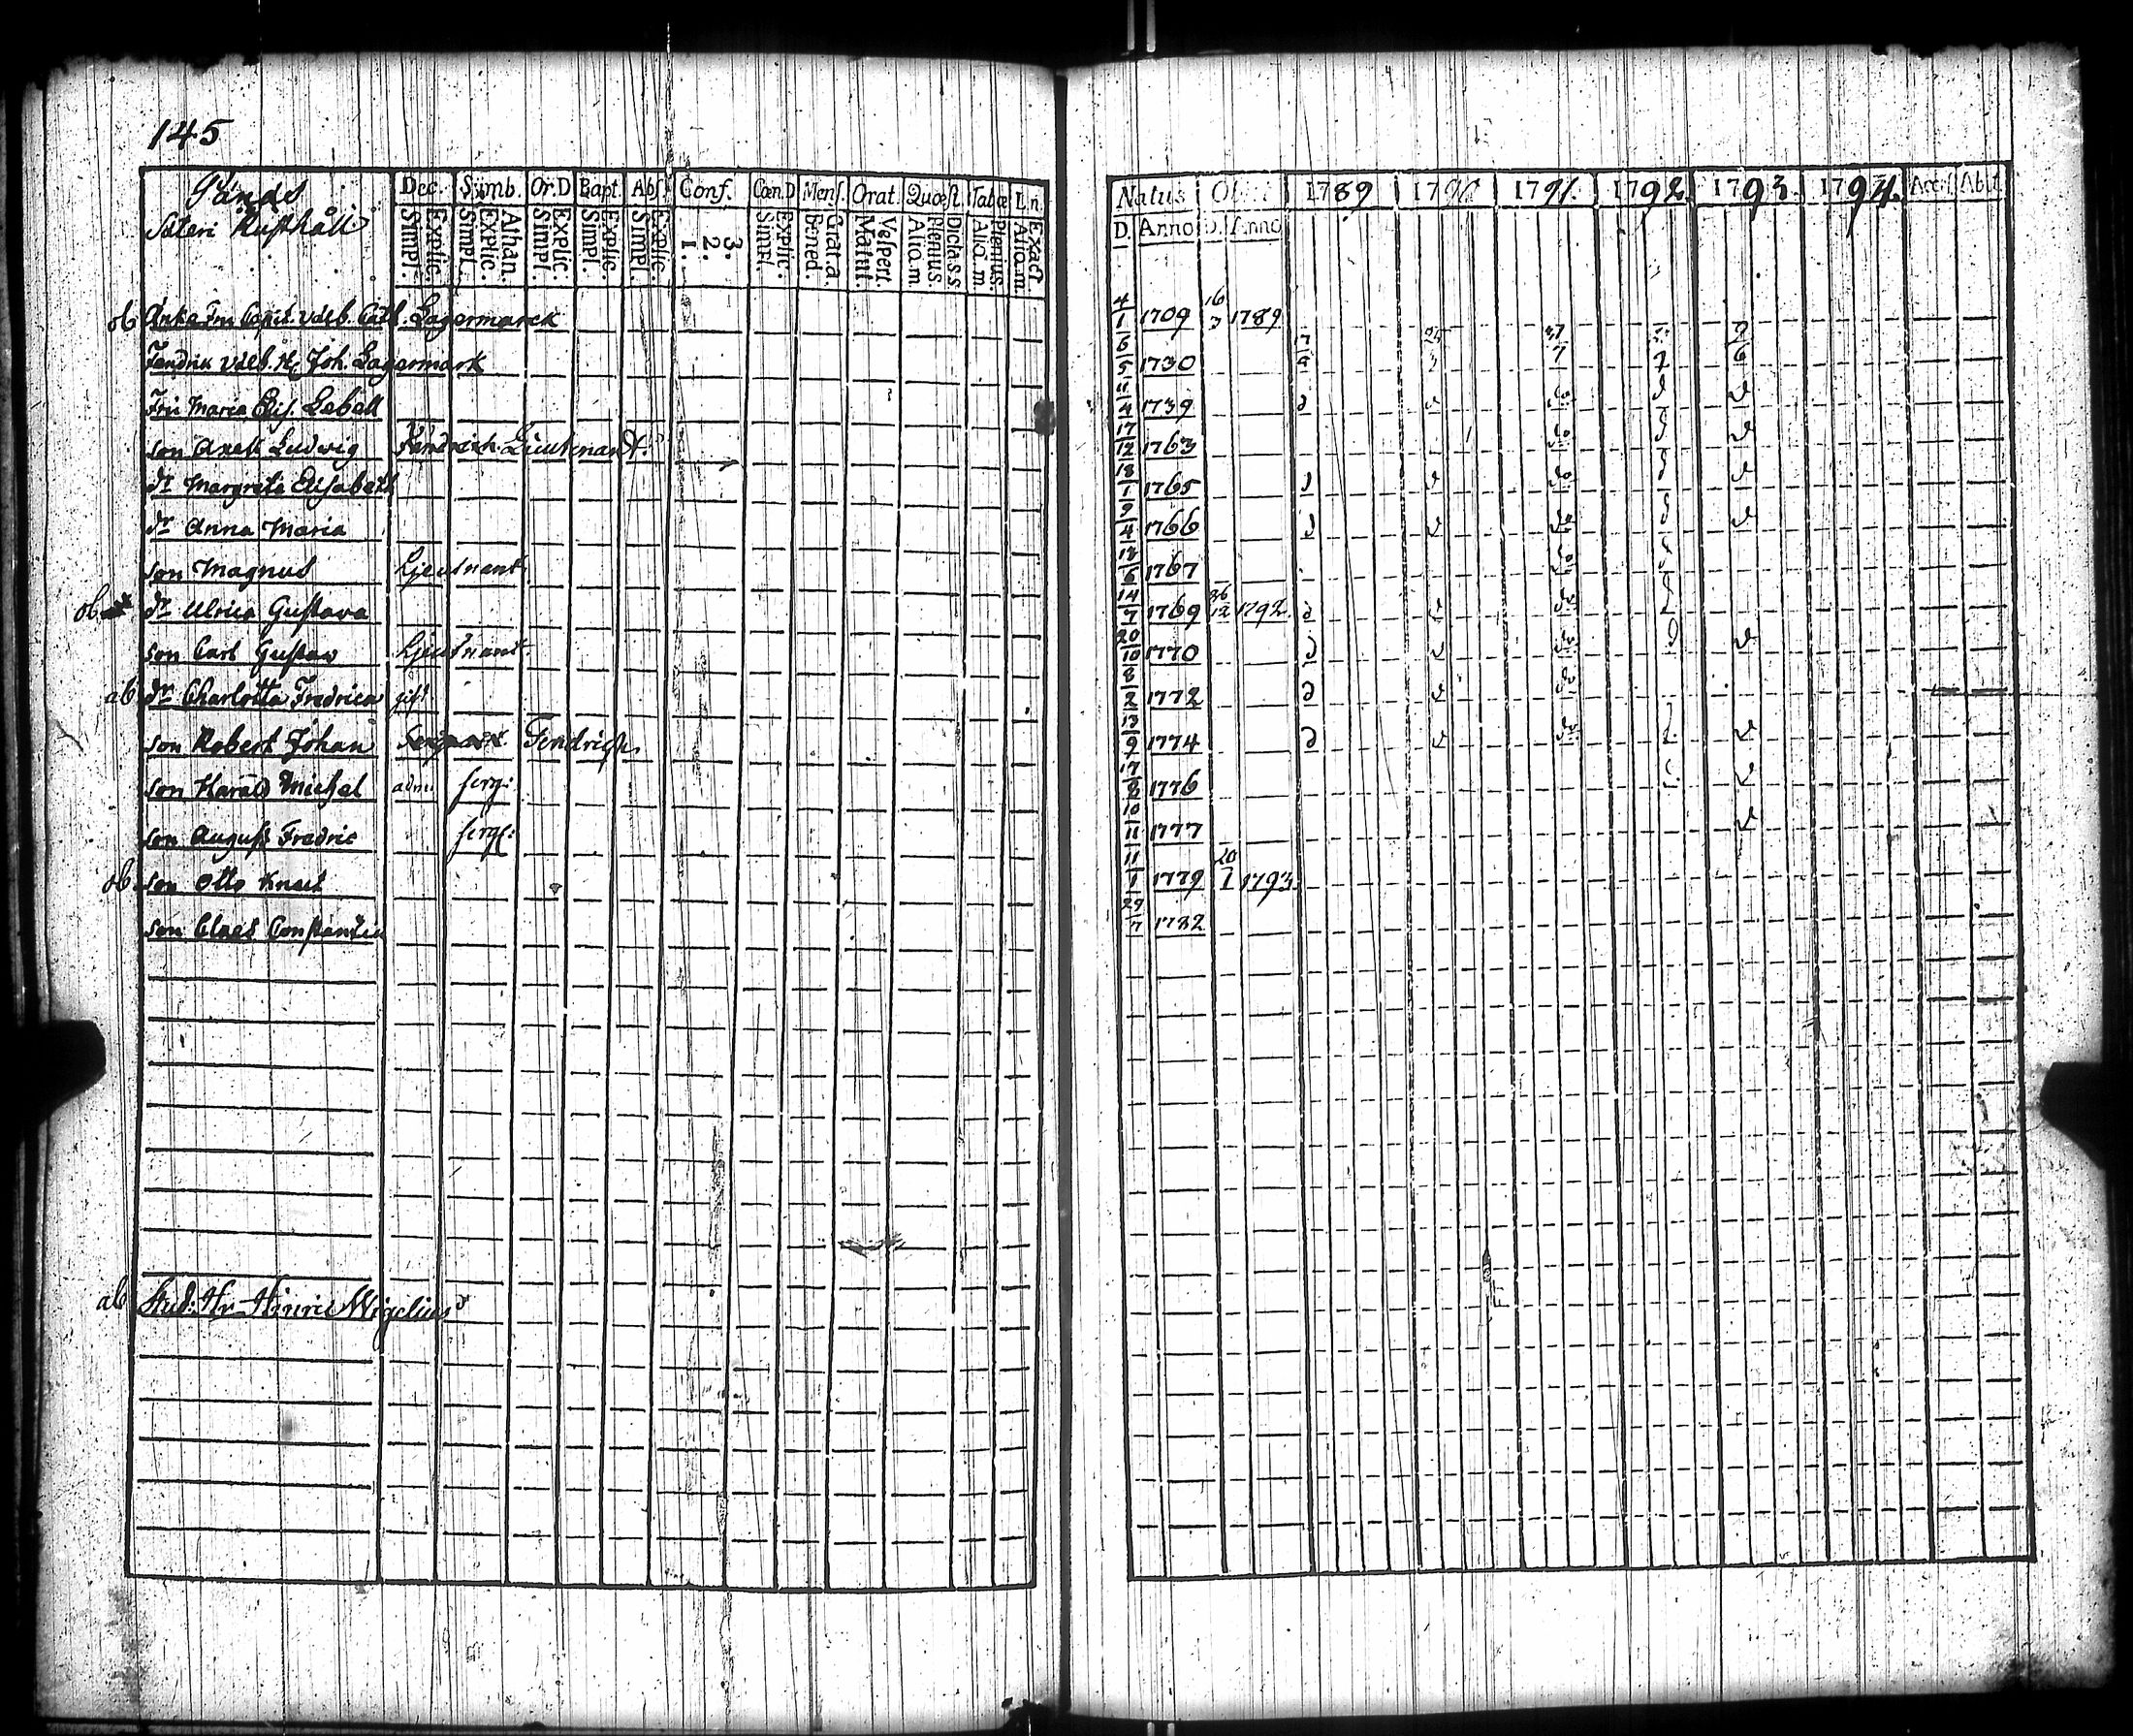 145
Säteri Rusthåll
Dec. Simb. Or.D Bapt. Abs. Conf. Cœn.D Mens. Orat. Quæst. Tabæ L.n.
Simpl. Explic. Simpl. Explic. Athan. Simpl. Explic. Simpl. Explic. Simpl. Explic. 1. 2. 3. Simpl. Explic. Bened. Grat.a. Matut. Vespert. Alio.m. Plenius. Dictass Alio.m. Plenius. Alio.m. Exact
Natus Obiit 1789 1790 1791. 1792. 1793. 1794. Acces. Abit.
D. Anno D. Anno
ob Änka Fru Capit. välb. Cath. Lagermarck 4/1 1709 16/3 1789
Fendrik välb. H Joh. Lagermark 6/5 1730
Fru Maria Elis. Lebell 11/4 1739
son Axel Ludvig Fendrich Lieutenandt 17/12 1763
dr Margreta Elisabeth 18/1 1765
dr Anna Maria 9/4 1766
son Magnus Ljeutnant 18/6 1767
ob dr Ulrica Gustava 14/7 1769 26/12 1792.
son Carl Gustav Ljeutnant 20/10 1770
ab dr Charlotta Fredrica gift 8/2 1772
son Robert Johan Sergeant Fendrich 13/9 1774
son Harald Michel adm. serg: 17/8 1776
son August Fredric serg: 10/11 1777
ob. son Otto Knut 11/1 1779 20/1 1793.
son Claes Constantin 29/7 1782
ab Stud: Hr Hinric Wigelius